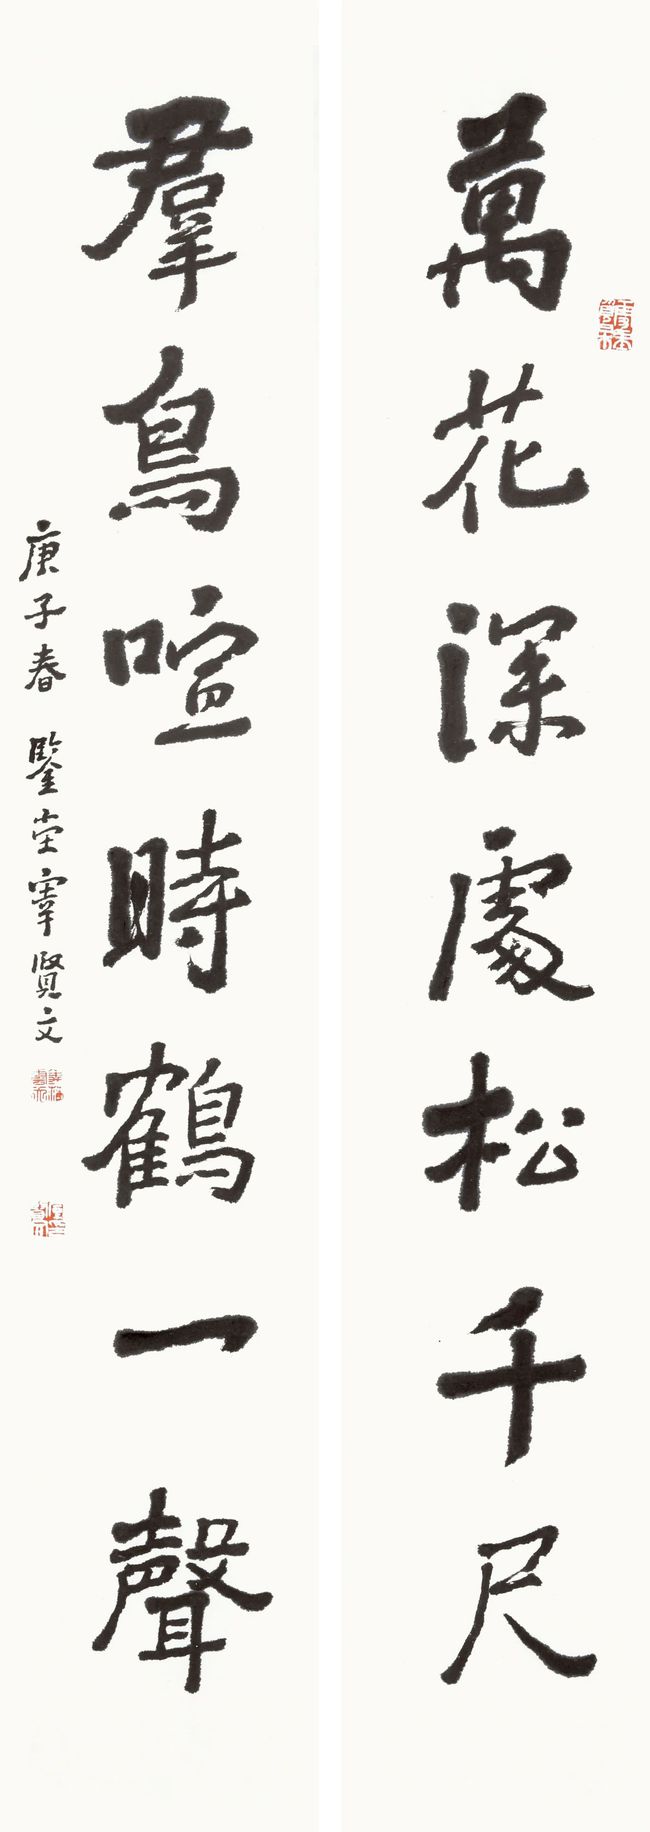 萬花深處松千尺
羣鳥喧時鶴一聲
庚子春 鑒堂宰賢文